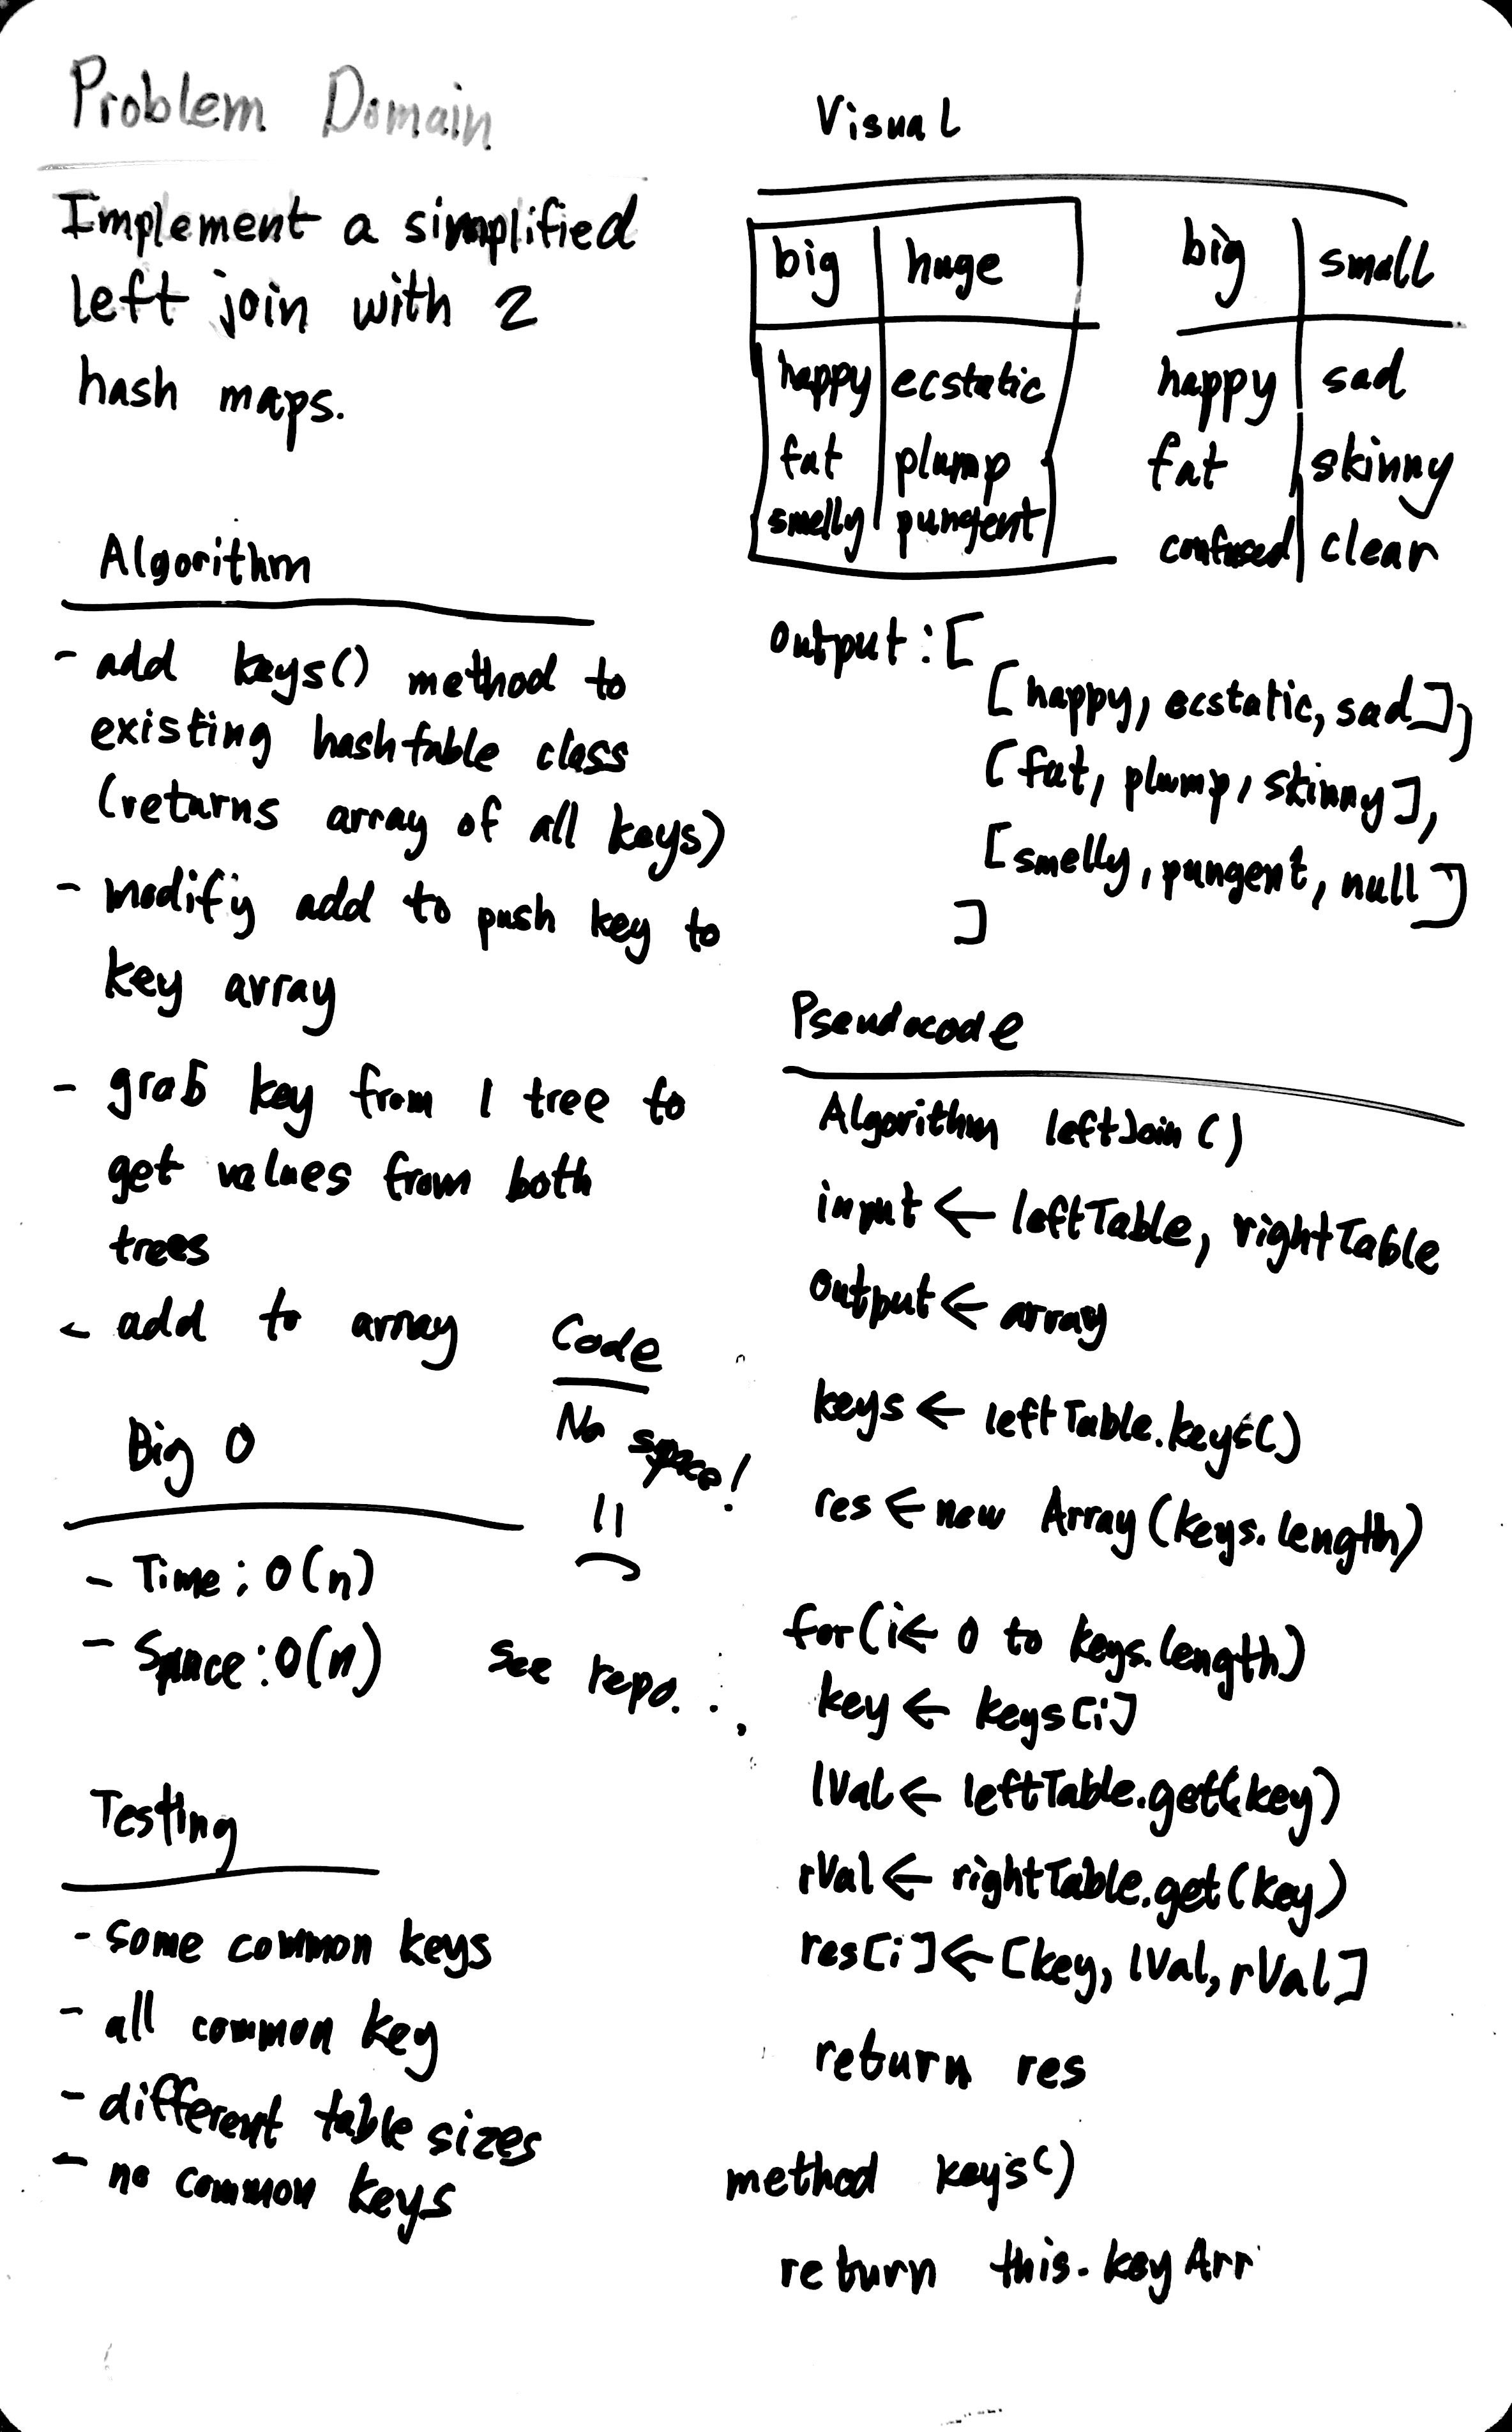 Problem Domain
Implement a simplified
left join with 2
hash maps.
Algorithm
- add keys() method to
existing hashtable class
(returns array of all keys)
- modify add to push key to
key array
- grab key from 1 tree to
get values from both
trees
- add to array
Big O
- Time: O(n)
- Space: O(n)
Code
No space!
see repo.
Testing
- some common keys
- all common key
- different table sizes
- no common keys
Visual
big | huge
happy | ecstatic
fat | plump
smelly | pungent
big | small
happy | sad
fat | skinny
confused | clear
Output: [
[happy, ecstatic, sad],
[fat, plump, skinny],
[smelly, pungent, null]
]
Pseudocode
Algorithm leftJoin()
input ← leftTable, rightTable
output ← array
keys ← leftTable.keys()
res ← new Array(keys.length)
for(i ← 0 to keys.length)
key ← keys[i]
lVal ← leftTable.get(key)
rVal ← rightTable.get(key)
res[i] ← [key, lVal, rVal]
return res
method keys()
return this.keyArr